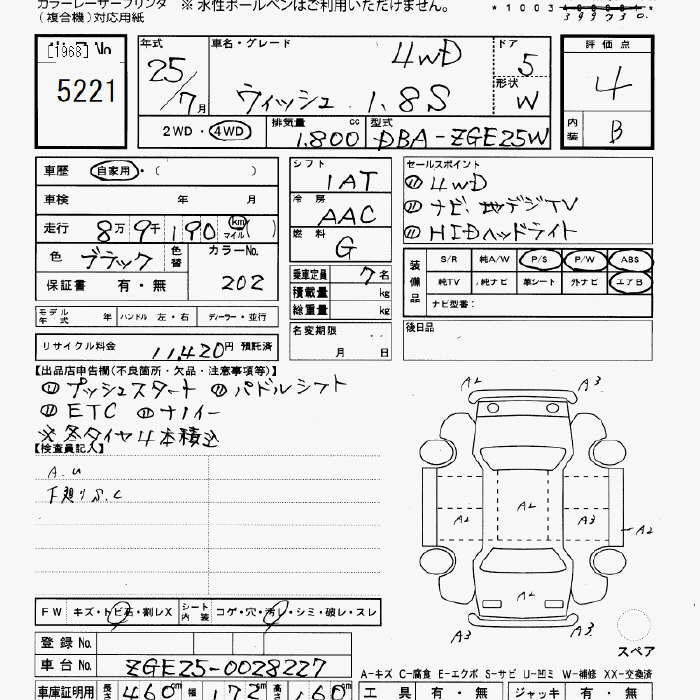 カラーレーザープリンタ ※ 水性ボールペンはご利用いただけません。
（複合機）対応用紙
[1968] No
5221
年式
25/7月
車名・グレード
4WD
ウィッシュ 1.8S
ドア
5
形状
W
評価点
4
内装
B
2WD・4WD
排気量 cc
1.800
型式
DBA-ZGE25W
車歴 自家用・（ ）
車検 年 月
走行 8万9千190 km マイル ( )
色 ブラック 色替
カラーNo.
202
保証書 有・無
シフト
1AT
冷房
AAC
燃料
G
乗車定員 7名
積載量 kg
総重量 kg
セールスポイント
① 4WD
① ナビ、地デジTV
① HIDヘッドライト
装備品
S/R 純A/W P/S P/W ABS
純TV 純ナビ 革シート 外ナビ エアB
ナビ型番：
モデル年式 年 ハンドル 左・右 ディーラー・並行
名変期限
月 日
後日品
リサイクル料金 11,420円 預託済
【出品店申告欄(不良箇所・欠品・注意事項等)】
① プッシュスタート ① パドルシフト
① ETC ① ナノイー
※冬タイヤ4本積込
【検査員記入】
A.U
下廻りふ.く
A2 A3
A2
A2 A3 A2
A2
A3 A3
スペア
FW キズ・トビ石・割レX シート内装 コゲ・穴・汚レ・シミ・破レ・スレ
登録 No.
車台 No. ZGE25-0028227
A−キズ C−腐食 E−エクボ S−サビ U−凹ミ W−補修 XX−交換済
車庫証明用 長さ 460cm 幅 172cm 高さ 160cm
工具 有・無 ジャッキ 有・無